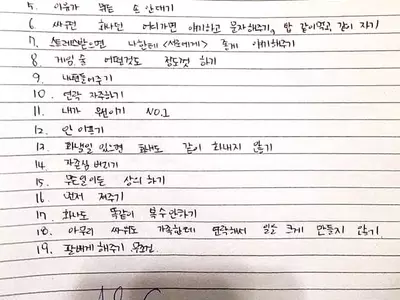 5. 이유가 뭐든 손 안대기
6. 싸우면 화나던 어디가면 얘기하고 문자해주기, 밥 같이먹고, 같이 자기
7. 스트레스받으면 나한테 <서로에게> 좋게 얘기해주기
8. 게임, 술 어떤것도 정도껏 하기
9. 내편들어주기
10. 연락 자주하기
11. 내가 뭔이기 NO.1
12. 안
13. 화낼일 있으면 화내도 같이 화내지 않기
14. 자존심 버리기
15. 무슨일이든 상의 하기
16. 먼저 져주기
17. 화나도 똑같이 복수안하기
18. 아무리 싸워도 가족한테 연락해서 일을 크게 만들지 않기.
19. 팔베게 해주기 무조건.